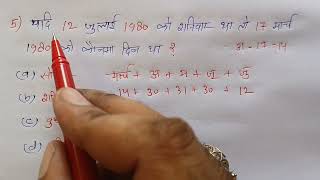 5) यदि 12 जुलाई 1980 को शनिवार था तो 17 मार्च
1980 को कौनसा दिन था ?
31 - 17 - 14
(a) मार्च + अ + म + जू + जु
(b) 14 + 30 + 31 + 30 + 12
(c)
(d)